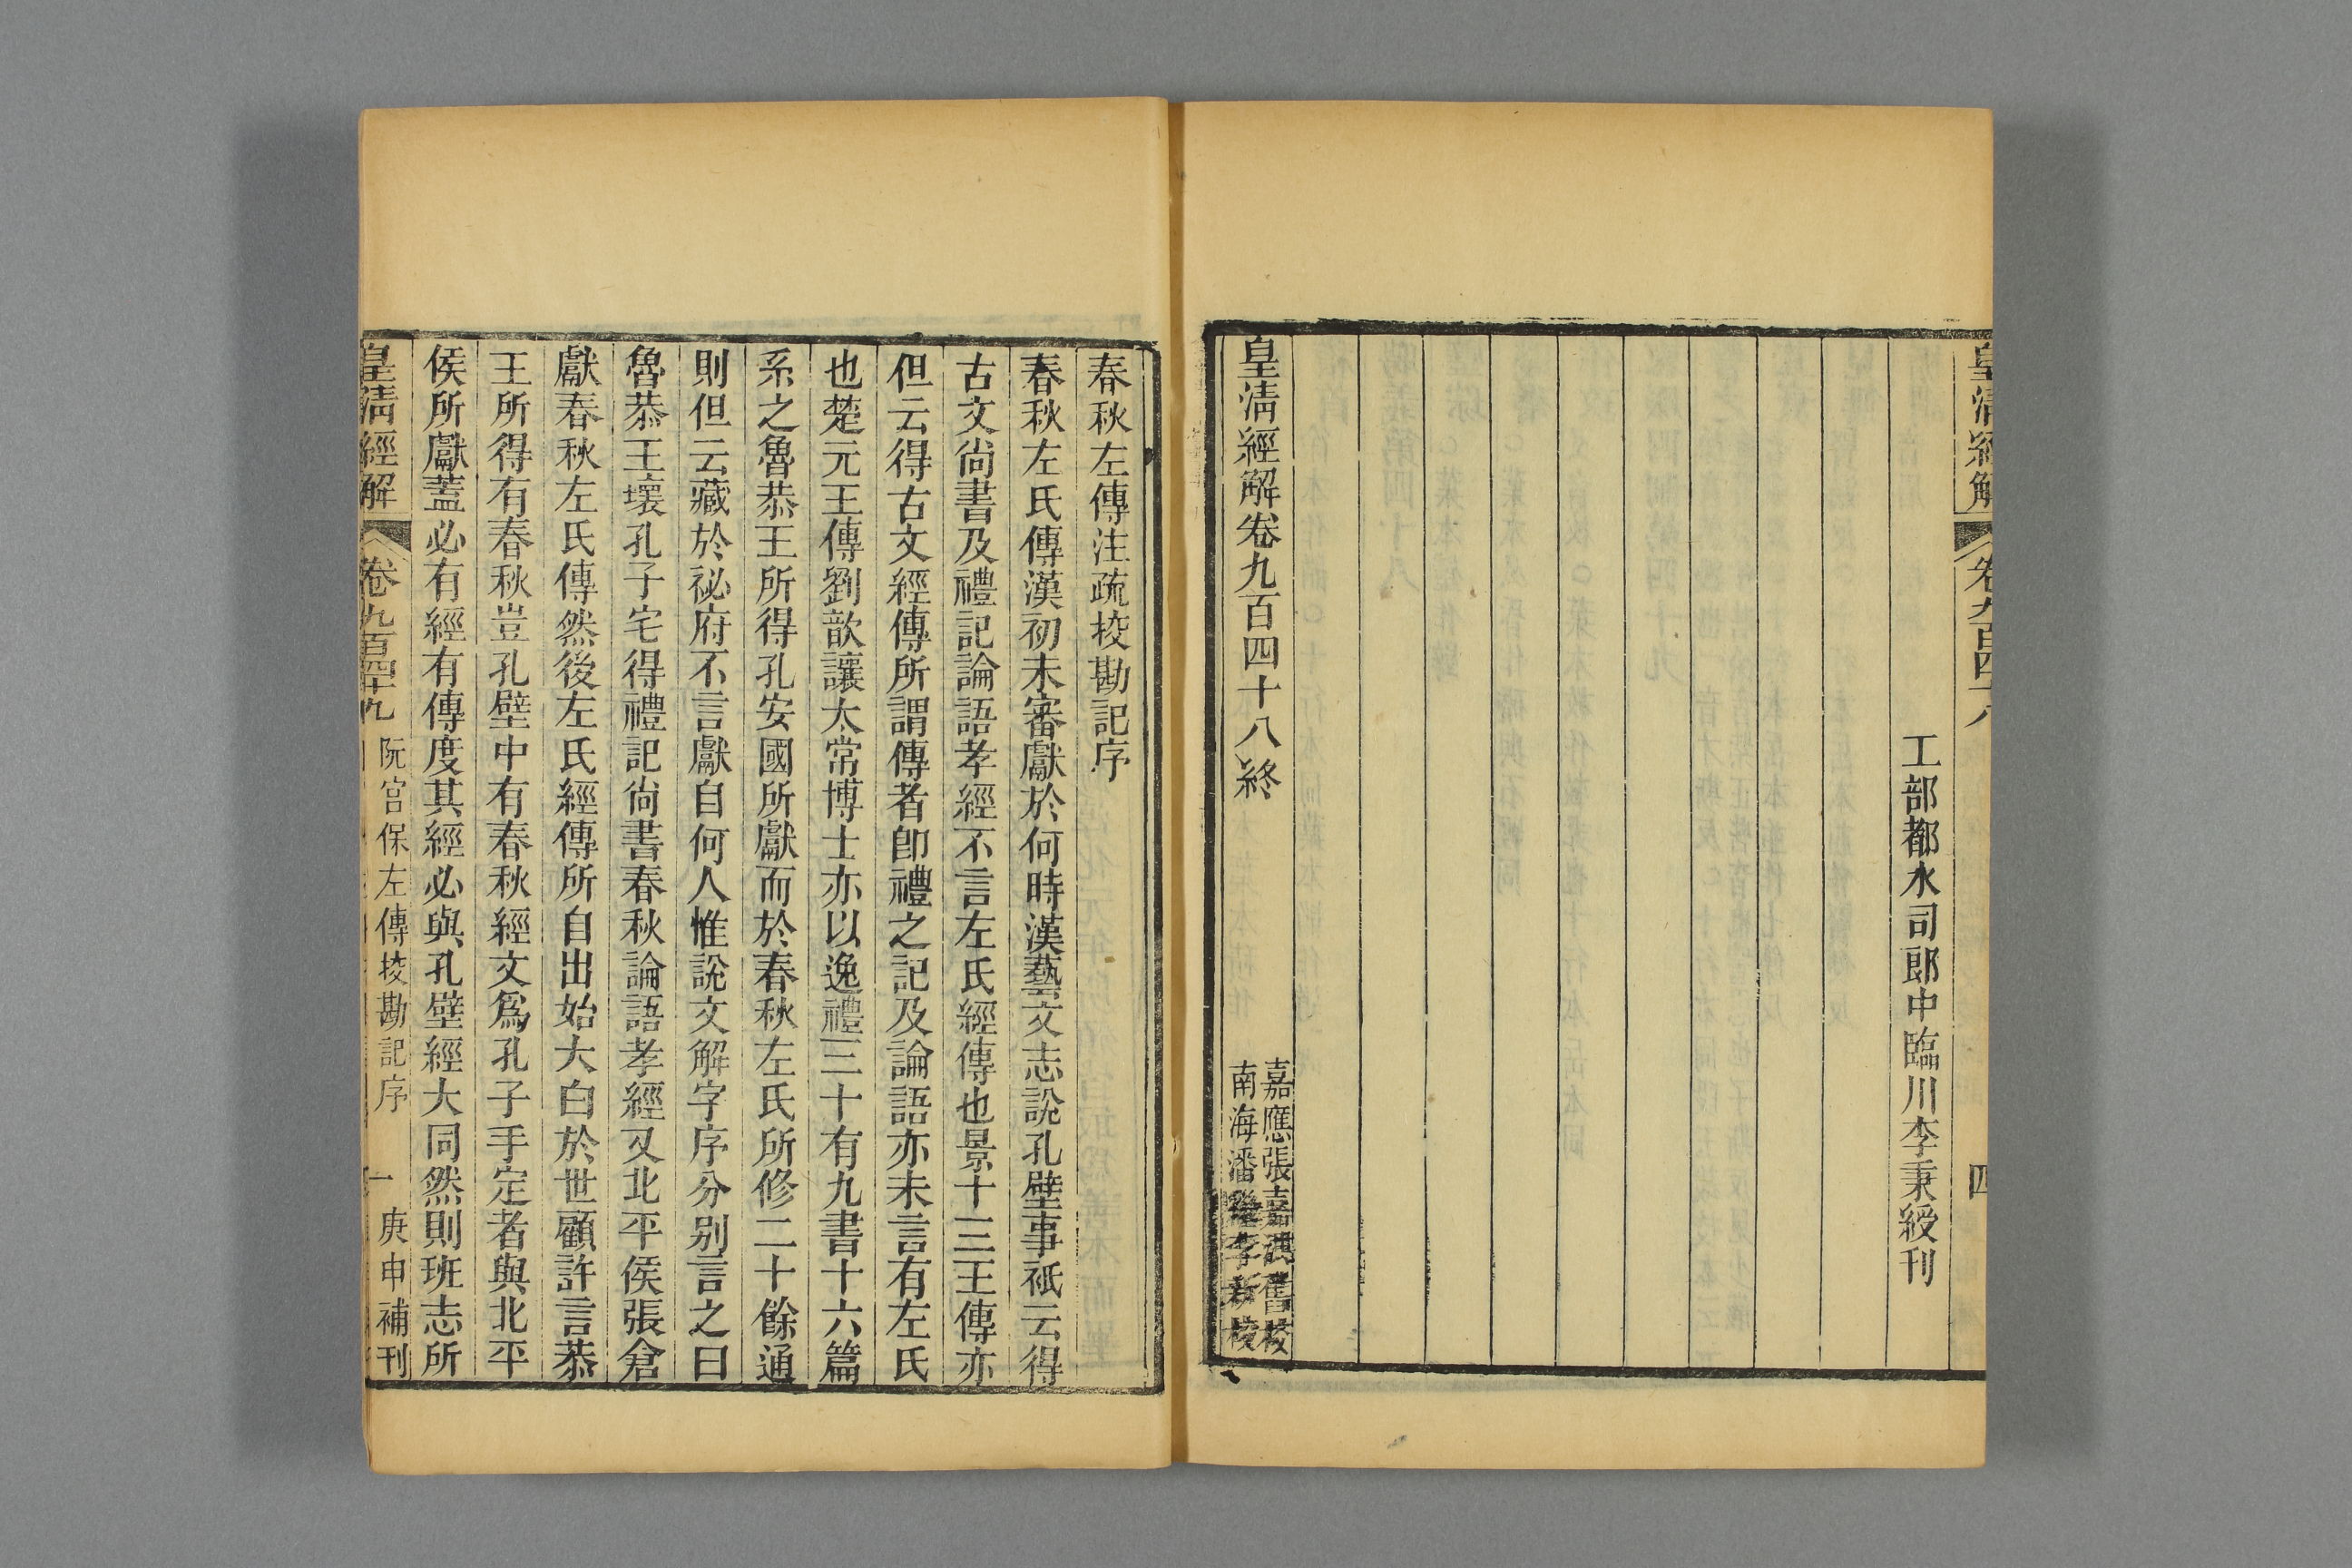 皇清經解 卷九百四十八 四
工部都水司郞中臨川李秉綬刊
皇清經解卷九百四十八終
嘉應張嘉洪舊挍
南海潘繼李新挍
春秋左傳注疏挍勘記序
春秋左氏傳漢初未審獻於何時漢藝文志說孔壁事祇云得
古文尙書及禮記論語孝經不言左氏經傳也景十三王傳亦
但云得古文經傳所謂傳者卽禮之記及論語亦未言有左氏
也楚元王傳劉歆讓太常博士亦以逸禮三十有九書十六篇
系之魯恭王所得孔安國所獻而於春秋左氏所修二十餘通
則但云藏於祕府不言獻自何人惟說文解字序分別言之曰
魯恭王壞孔子宅得禮記尙書春秋論語孝經又北平侯張倉
獻春秋左氏傳然後左氏經傳所自出始大白於世顧許言恭
王所得有春秋豈孔壁中有春秋經文爲孔子手定者與北平
侯所獻蓋必有經有傳度其經必與孔壁經大同然則班志所
皇清經解 卷九百四十九 阮宮保左傳挍勘記序 一 庚申補刊